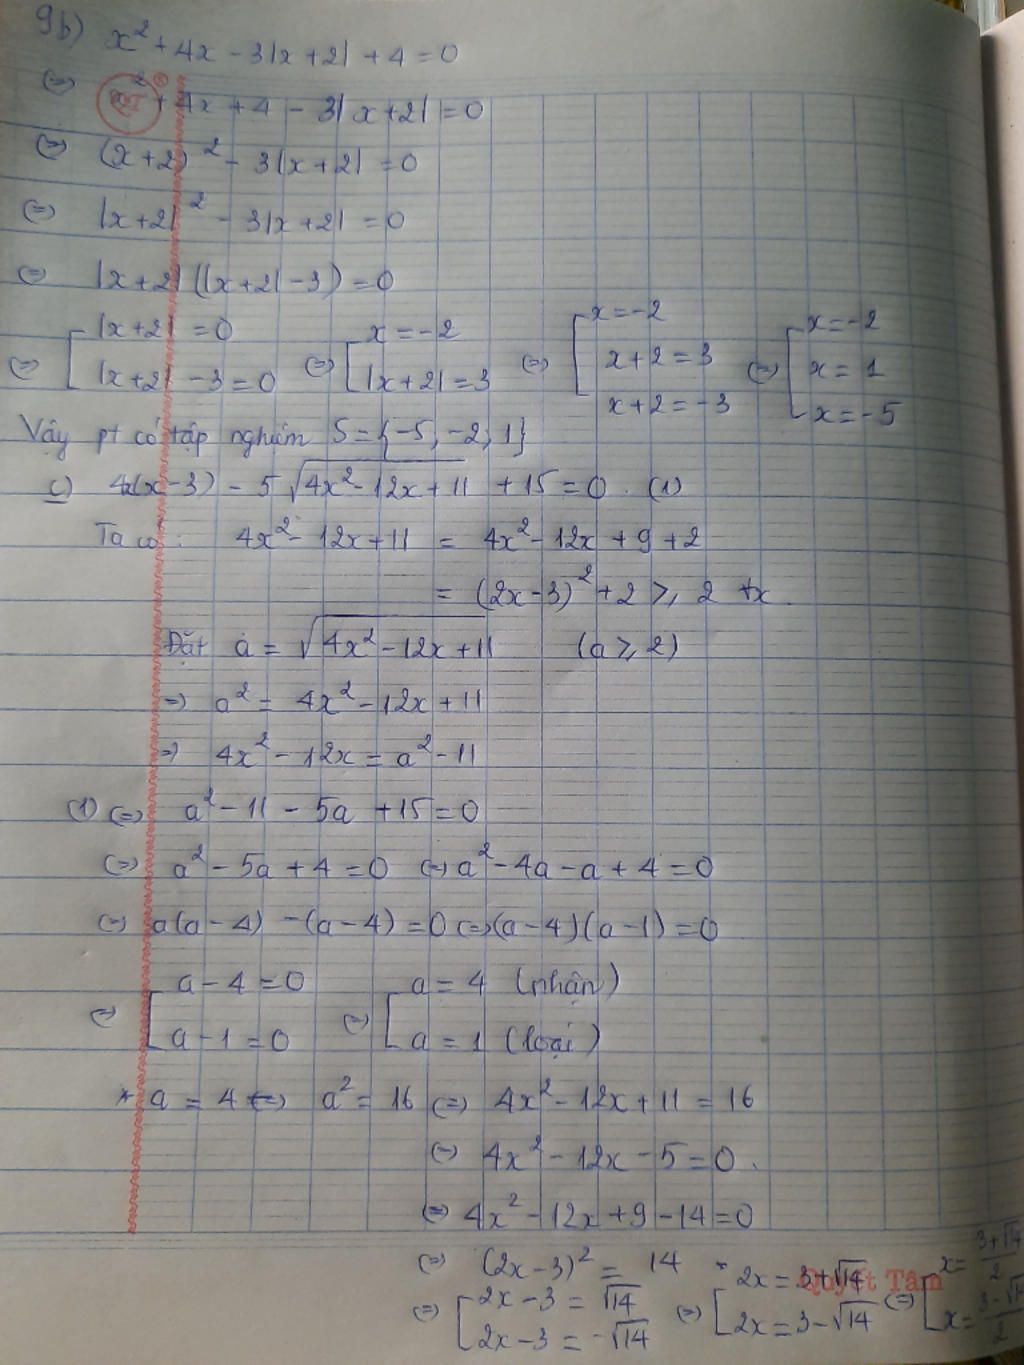 9b) x² + 4x - 3|x+2| + 4 = 0
(=) x² + 4x + 4 - 3|x+2| = 0
(=) (x+2)² - 3|x+2| = 0
(=) |x+2|² - 3|x+2| = 0
(=) |x+2|(|x+2| - 3) = 0
(=) [ |x+2| = 0 (=) [ x = -2 (=) [ x = -2 (=) [ x = -2
|x+2| - 3 = 0 |x+2| = 3 x+2 = 3 x = 1
x+2 = -3 x = -5
Vậy pt có tập nghiệm S = {-5, -2, 1}
c) 4x(x-3) - 5√(4x² - 12x + 11) + 15 = 0. (1)
Ta có: 4x² - 12x + 11 = 4x² - 12x + 9 + 2
= (2x-3)² + 2 ≥ 2 ∀x.
Đặt a = √(4x² - 12x + 11) (a ≥ 2)
=> a² = 4x² - 12x + 11
=> 4x² - 12x = a² - 11
(1) (=) a² - 11 - 5a + 15 = 0
(=) a² - 5a + 4 = 0 (=) a² - 4a - a + 4 = 0
(=) a(a-4) - (a-4) = 0 (=) (a-4)(a-1) = 0
(=) [ a - 4 = 0 (=) [ a = 4 (nhận)
a - 1 = 0 a = 1 (loại)
* a = 4 (=) a² = 16 (=) 4x² - 12x + 11 = 16
(=) 4x² - 12x - 5 = 0.
(=) 4x² - 12x + 9 - 14 = 0
(=) (2x-3)² = 14
(=) [ 2x - 3 = √14 (=) [ 2x = 3 + √14 (=) [ x = (3+√14)/2
2x - 3 = -√14 2x = 3 - √14 x = (3-√14)/2
Quyết Tâm